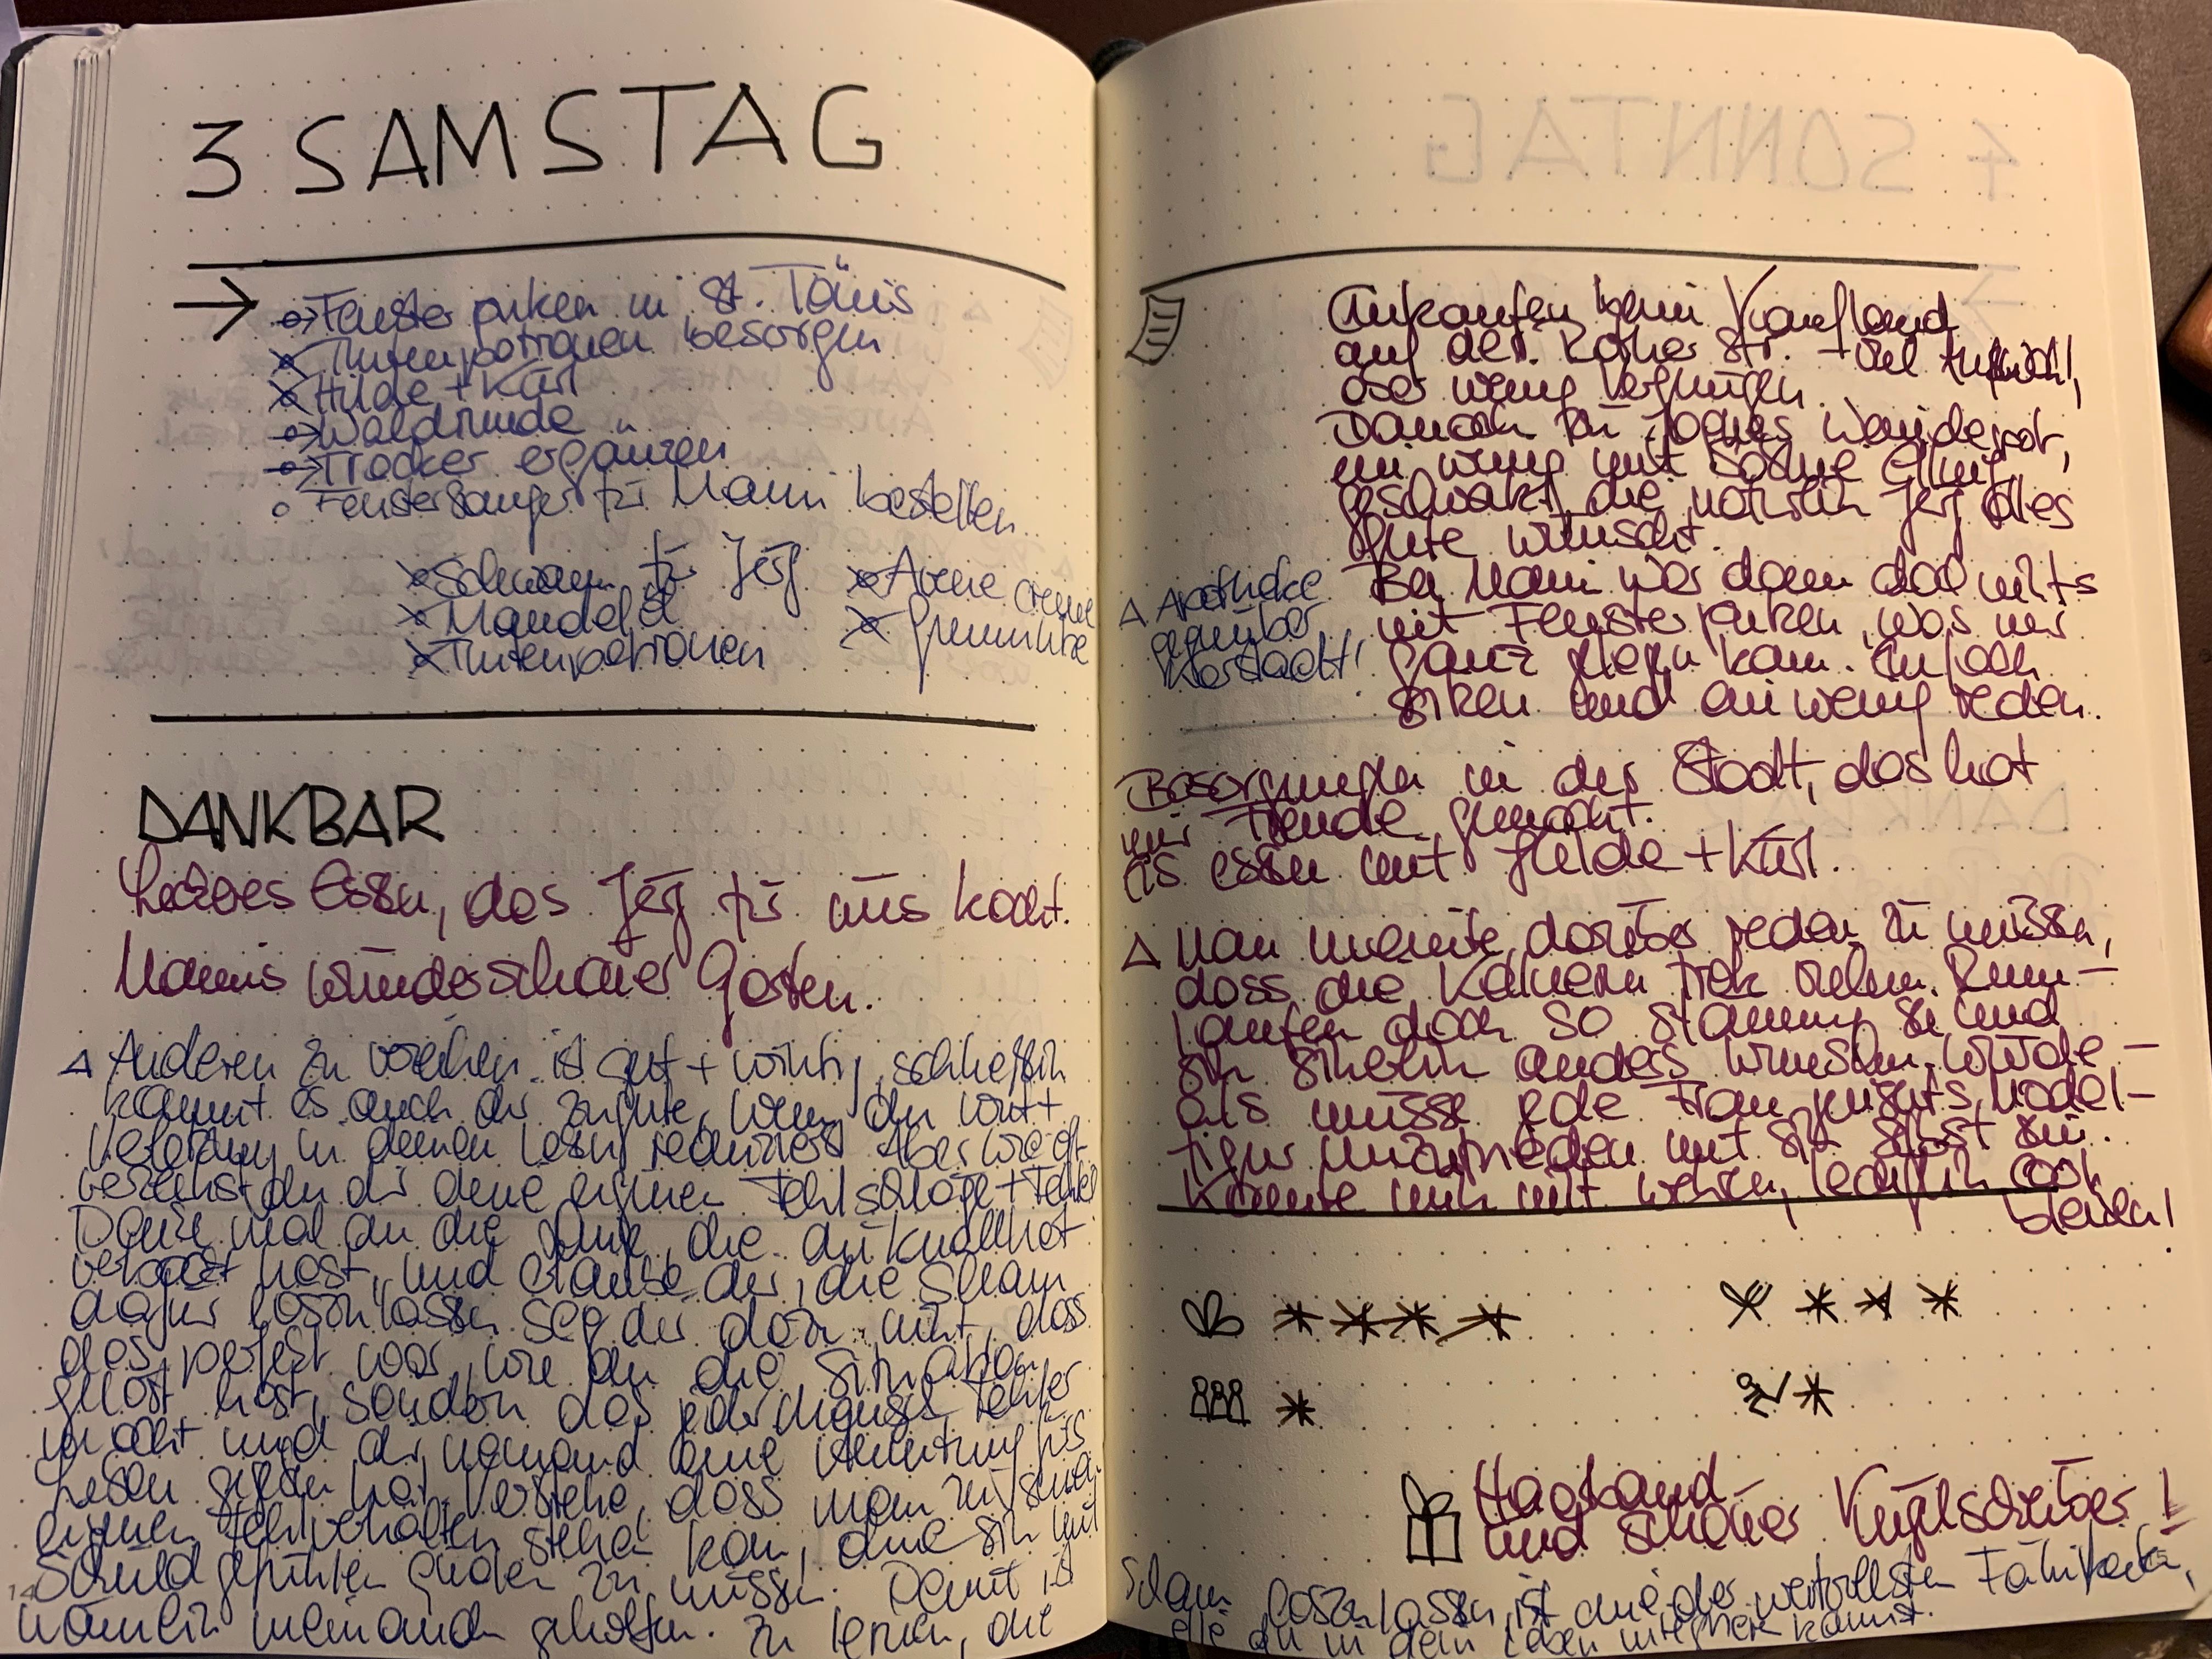 3 SAMSTAG
Fenster putzen in St. Tönis
Tintenpatronen besorgen
Hilde + Karl
Waldrunde
Tracker ergänzen
Fenstersauger für Mami bestellen
Schwamm für Jörg
Avene Creme
Mandelöl
Tintenpatronen
DANKBAR
Leckeres Essen, das Jörg für uns kocht.
Mamis wunderschöner Garten.
Anderen zu verzeihen ist gut + wichtig, schließlich
kommt es auch dir zugute, wenn du Wut +
in deinem reduzierst. Aber wie oft
verzeihst du dir deine eigenen Fehlschläge + Fehler
Denk mal an die Dinge, die du knallhart
hast, und erlaube dir, die Scham
dafür loszulassen. Sag dir dazu nicht, dass
das perfekt war, wie du die Situation
gelöst hast, sondern das jeder Mensch Fehler
macht und dir niemand eine Anleitung fürs
Leben gegeben hat. Verstehe, dass man zu
eigenen Fehlverhalten stehen kann, ohne sich mit
Schuldgefühlen zu müssen. Damit ist
nämlich niemandem geholfen. Zu lernen, die
14
Einkaufen beim Kaufland
auf der Str. – viel
aber wenig Vergnügen.
Danach zu
ein wenig mit
die natürlich Jörg alles
Gute wünscht.
Bei Mami war dann doch nichts
mit Fenster putzen, was mir
ganz gelegen kam. Einfach
sitzen und ein wenig reden.
Apotheke
gegenüber
Karstadt!
Besorgungen in der Stadt, das hat
mir Freude gemacht.
Eis essen mit Hilde + Karl.
Man meinte, darüber reden zu müssen,
dass die
laufen doch so stämmig sei und
sich sicherlich anders wünschen würde –
als müsse jede Frau Model-
figur unzufrieden mit sich selbst sein.
Konnte mich nicht wehren, lediglich cool
bleiben!
Haarband
und schöner Kugelschreiber!
Scham loszulassen, ist eine der wertvollsten Fähigkeiten,
die du in dein Leben integrieren kannst.